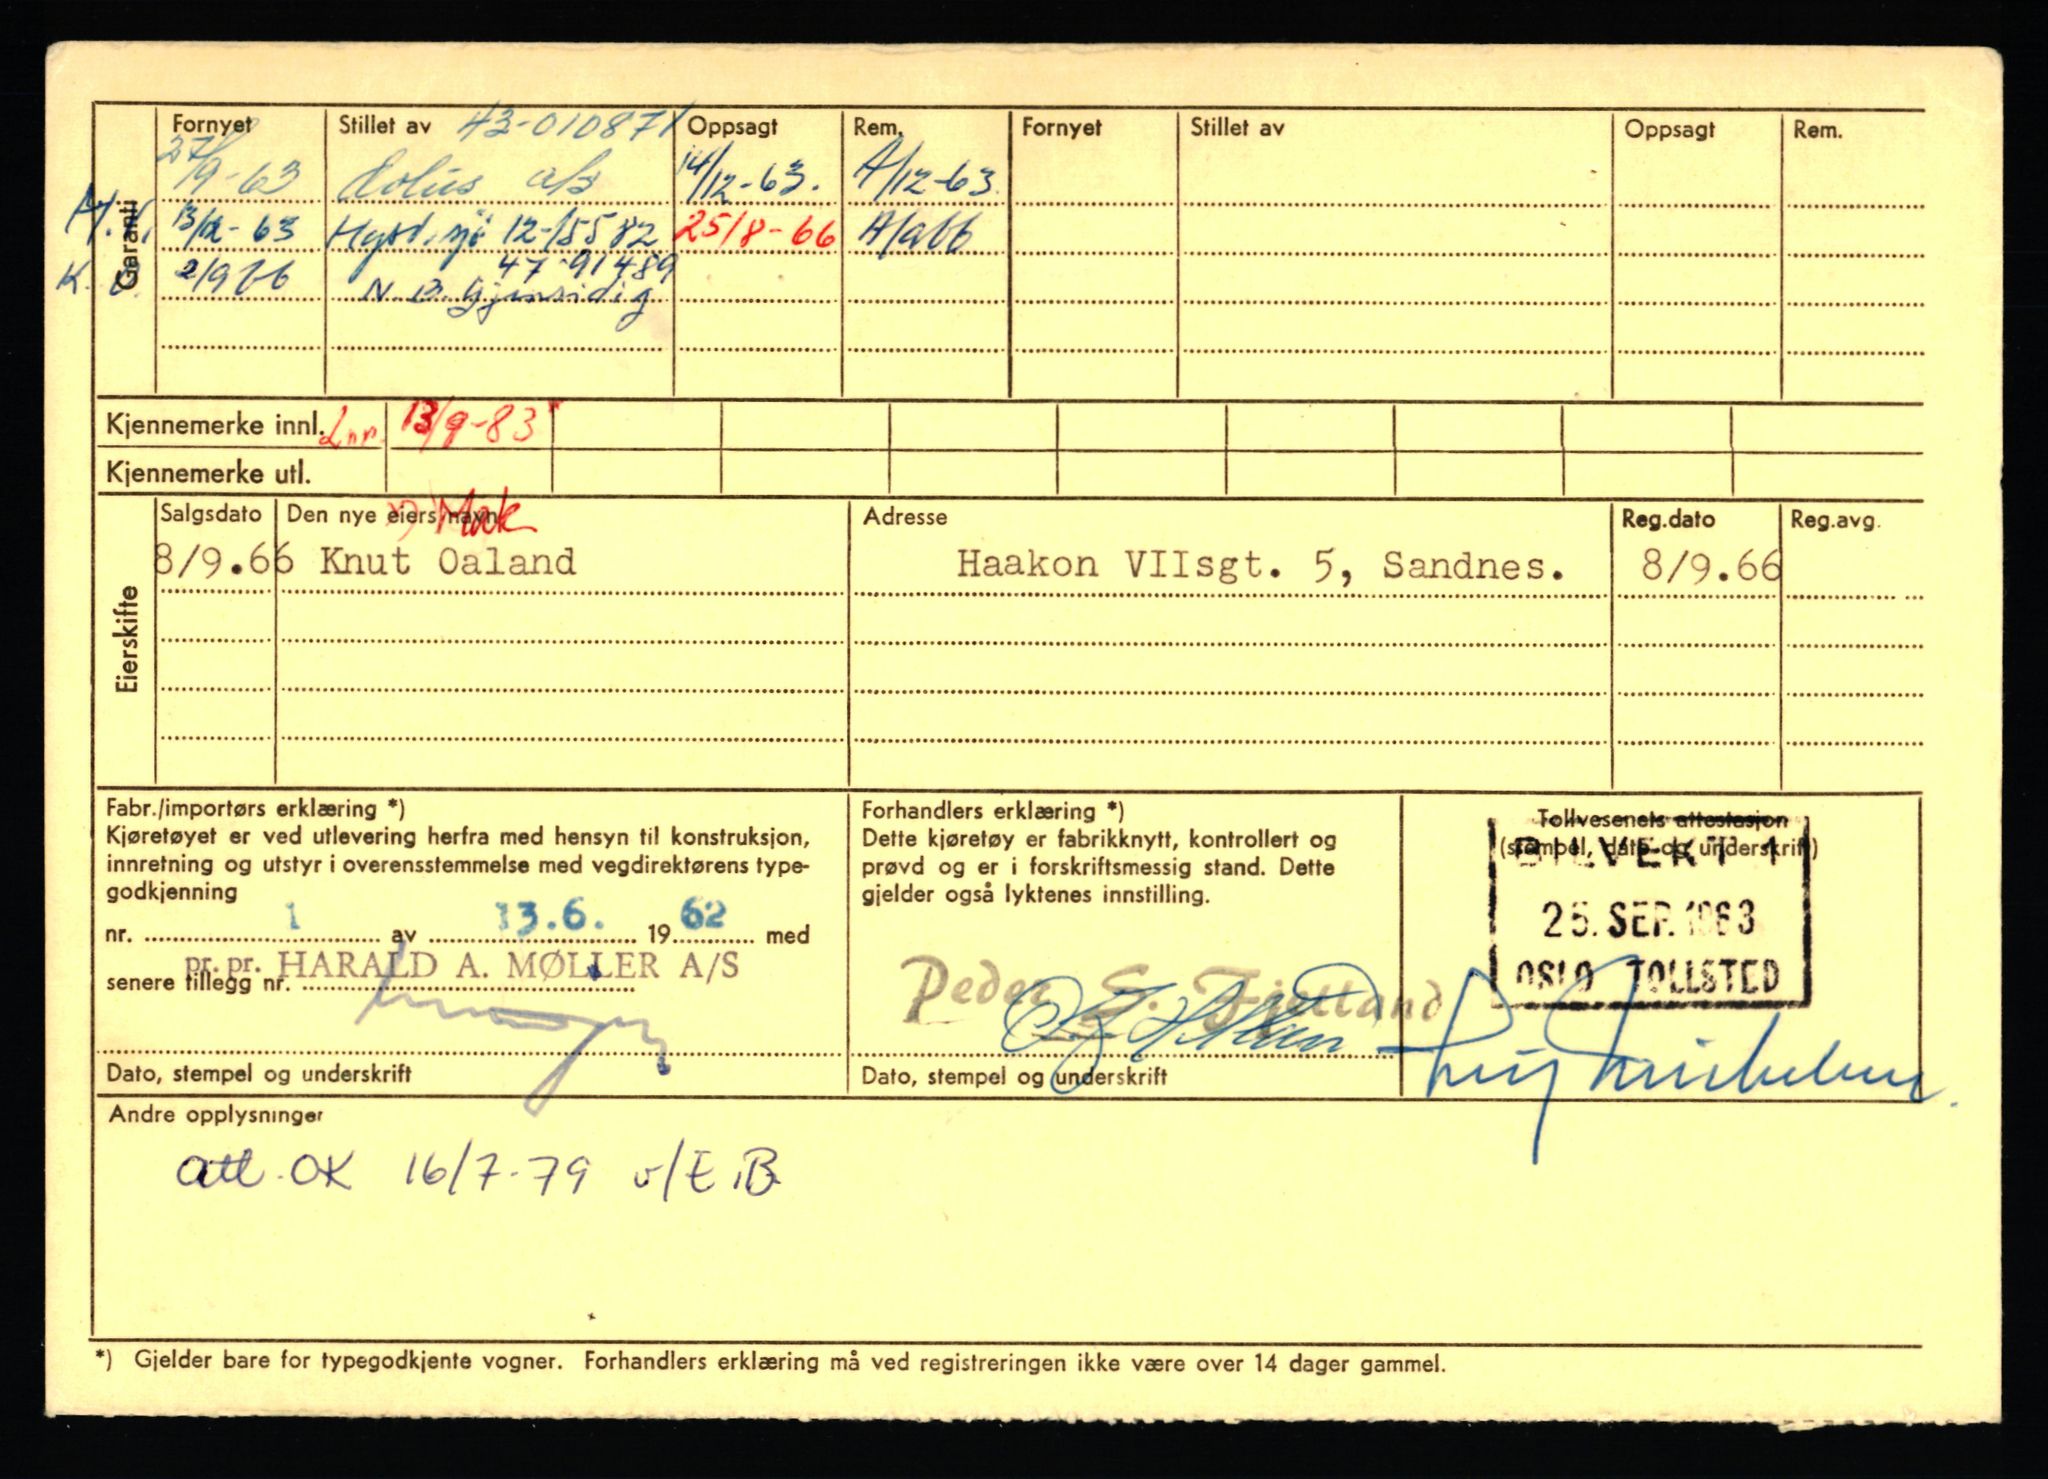 Garanti
Fornyet Stillet av 43-010871 Oppsagt Rem. Fornyet Stillet av Oppsagt Rem.
27/9-63 Eolus a/s 14/12-63. A/12-63
13/12-63 12-15582 25/8-66
K. 2/9 66 47-91489
N. B. Gjensidig
Kjennemerke innl. Inn. 13/9-83
Kjennemerke utl.
Eierskifte
Salgsdato Den nye eiers navn Adresse Reg.dato Reg.avg.
8/9.66 Knut Oaland Haakon VIIsgt. 5, Sandnes. 8/9.66
Fabr./importørs erklæring *)
Kjøretøyet er ved utlevering herfra med hensyn til konstruksjon,
innretning og utstyr i overensstemmelse med vegdirektørens type-
godkjenning
nr. 1 av 13.6. 19 62 med
pr. pr. HARALD A. MØLLER A/S
senere tillegg nr.
Dato, stempel og underskrift
Forhandlers erklæring *)
Dette kjøretøy er fabrikknytt, kontrollert og
prøvd og er i forskriftsmessig stand. Dette
gjelder også lyktenes innstilling.
Peder S. Fjelland
Dato, stempel og underskrift
Tollvesenets attestasjon
(stempel, dato og underskrift)
BILVEKT 1
25. SEP. 1963
OSLO TOLLSTED
Andre opplysninger
att. OK 16/7-79 v/E.B.
*) Gjelder bare for typegodkjente vogner. Forhandlers erklæring må ved registreringen ikke være over 14 dager gammel.